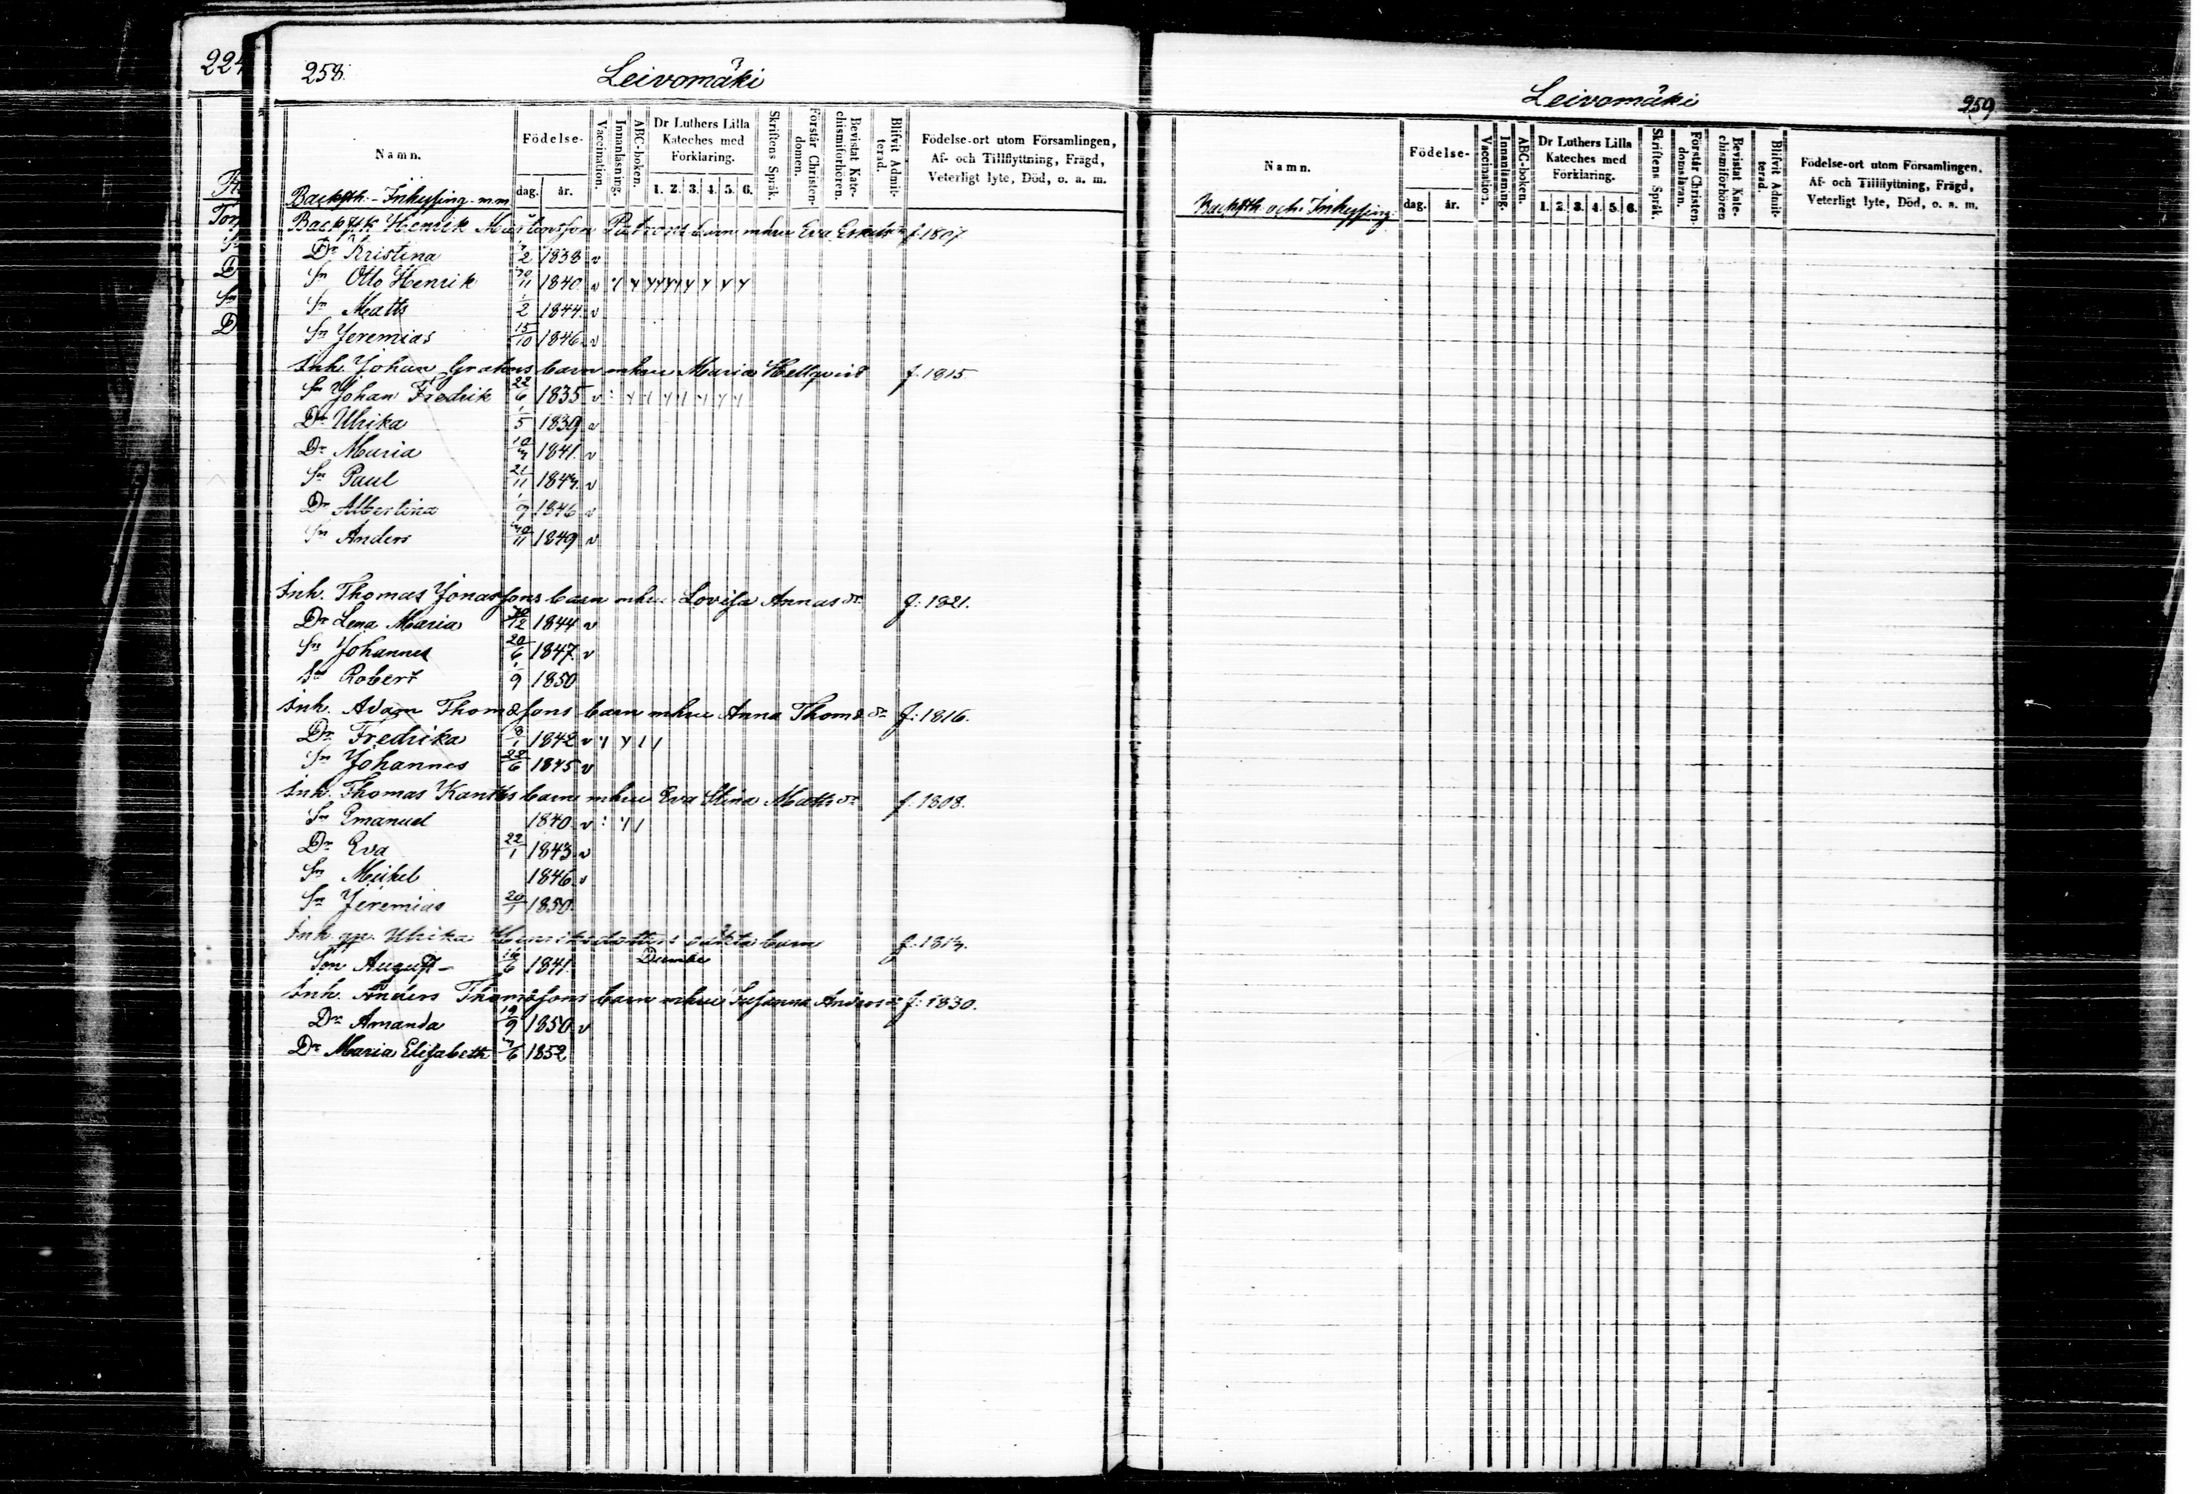 224
258.
Leivomäki
Namn.
Födelse-
dag. år.
Vaccination.
Innanläsning.
ABC-boken.
Dr Luthers Lilla
Kateches med
Förklaring.
1. 2. 3. 4. 5. 6.
Skriftens Språk.
Förstår Christen-
domen.
Bevistat Kate-
chismiförhören.
Blifvit Admit-
terad.
Födelse-ort utom Församlingen,
Af- och Tillflyttning, Frägd,
Veterligt lyte, Död, o. a. m.
Backstk Henrik barn m hru Eva f. 1807
Dr Kristina 2 1838 v
Sn Otto Henrik 1840 v
Sn Matts 1/2 1844 v
Sn Jeremias 15/10 1846 v
Inh. Johan barn m hru Maria Hellqvist f. 1815
Sn Johan Fredrik 22/6 1835 v
Dr Ulrika 1/5 1839 v
Dr Maria 1841 v
Sn Paul 21/11 1843 v
Dr Albertina 1846 v
Sn Anders 1849 v
Inh. Thomas Jonassons barn m hru Lovisa Annas dr f: 1821.
Dr Lena Maria 1844 v
Sn Johannes 20/6 1847 v
Sn Robert 1/9 1850
Inh. Adam Thomassons barn m hru Anna Thoms dr f: 1816.
Dr Fredrika 1842 v
Sn Johannes 22/6 1845 v
Inh. Thomas barn m hru Eva Stina Matts dr f. 1808.
Sn Emanuel 1840 v
Dr Eva 22/1 1843 v
Sn Mickel 1846 v
Sn Jeremias 20/1 1850
Inh. Ulrika Henriksdotters oäkta barn f. 1813.
Son August 1841
Inh. Anders Thomassons barn m hru Susanna Anders dr f: 1830.
Dr Amanda 19/9 1850 v
Dr Maria Elisabeth 1852
Leivomäki
259
Namn.
Backstk och Inhysing
Födelse-
dag. år.
Vaccination.
Innanläsning.
ABC-boken.
Dr Luthers Lilla
Kateches med
Förklaring.
1. 2. 3. 4. 5. 6.
Skriftens Språk.
Förstår Christen-
domsläran.
Bevistat Kate-
chismiförhören
Blifvit Admit-
terad.
Födelse-ort utom Församlingen,
Af- och Tillflyttning, Frägd,
Veterligt lyte, Död, o. a. m.